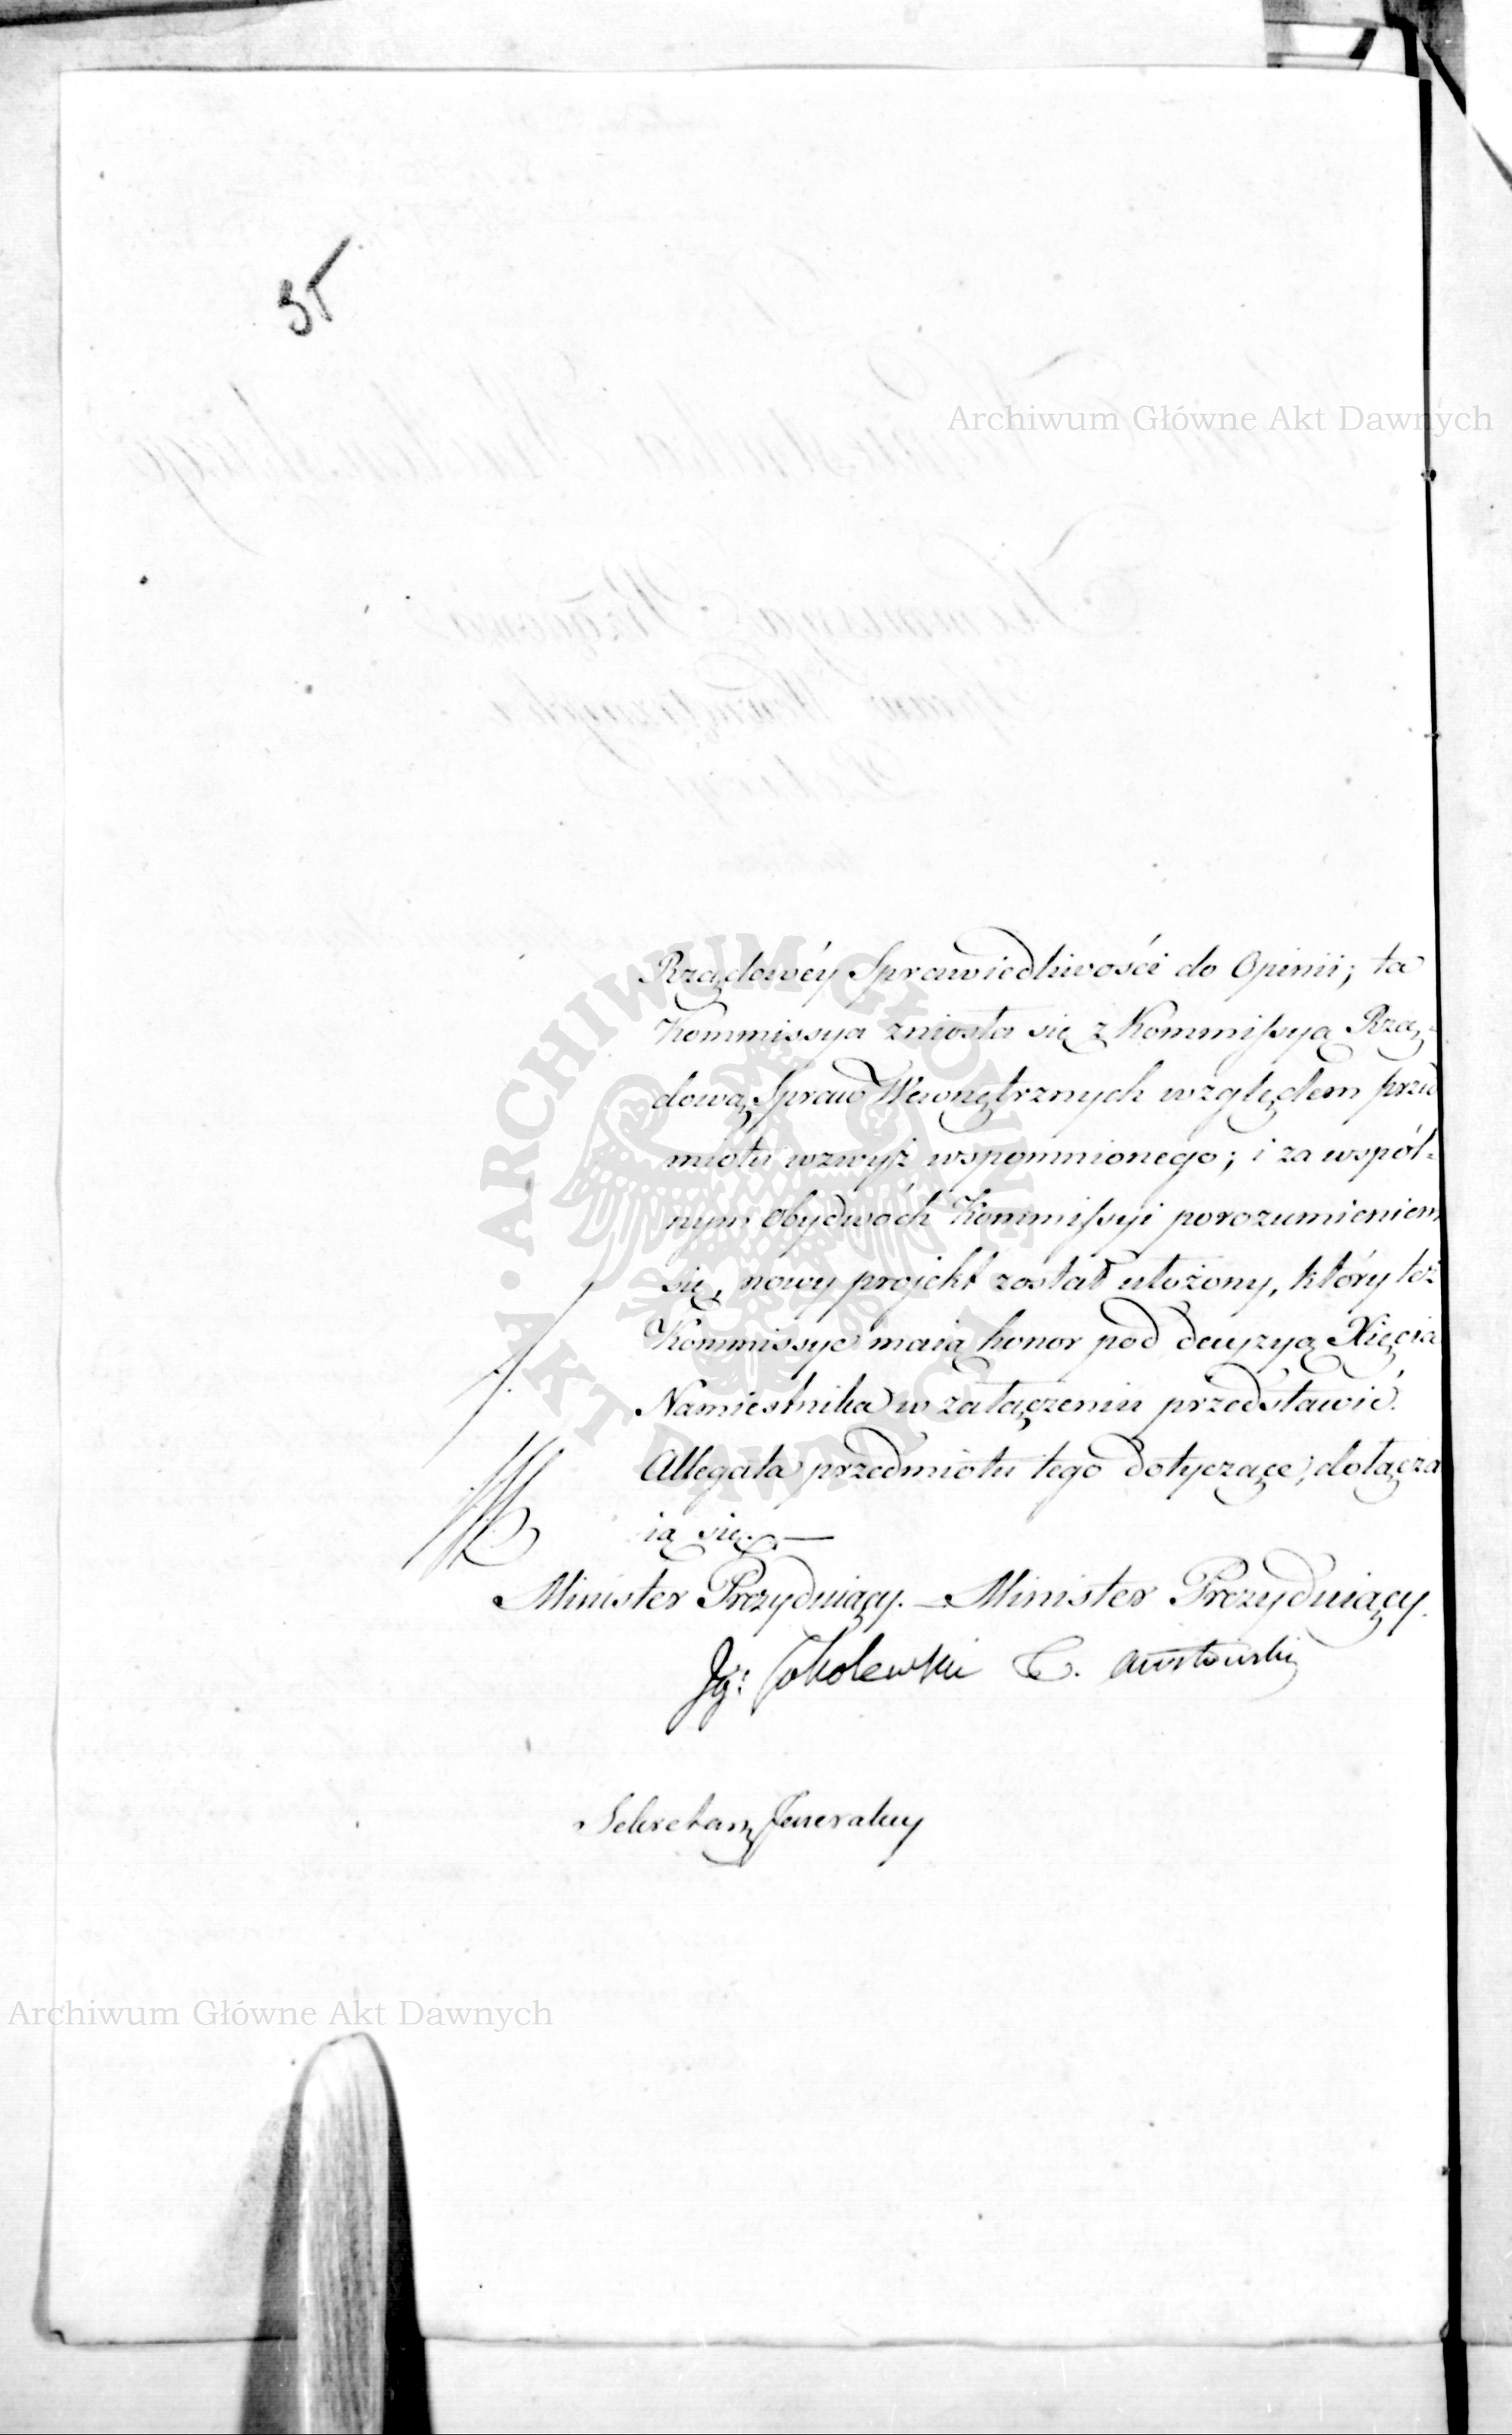 35
Archiwum Główne Akt Dawnych
Rządowéy Sprawiedliwości do Opinii; ta
Kommissya zniosła się z Kommissyą Rzą-
dową Spraw Wewnętrznych względem przed
miotu wzwyż wspomnionego; i za wspól-
nym obydwóch Kommissyi porozumieniem
się, nowy projekt został ułożony, który też
Kommissye maią honor pod decyzyą Xięcia
Namiestnika w załączeniu przedstawić.
Allegata przedmiotu tego dotyczące, dołącza
ią się. —
Minister Prezyduiący. — Minister Prezyduiący.
Jg: Sokolewski
Sekretarz Jeneralny
Archiwum Główne Akt Dawnych
ARCHIWUM GŁÓWNE AKT DAWNYCH